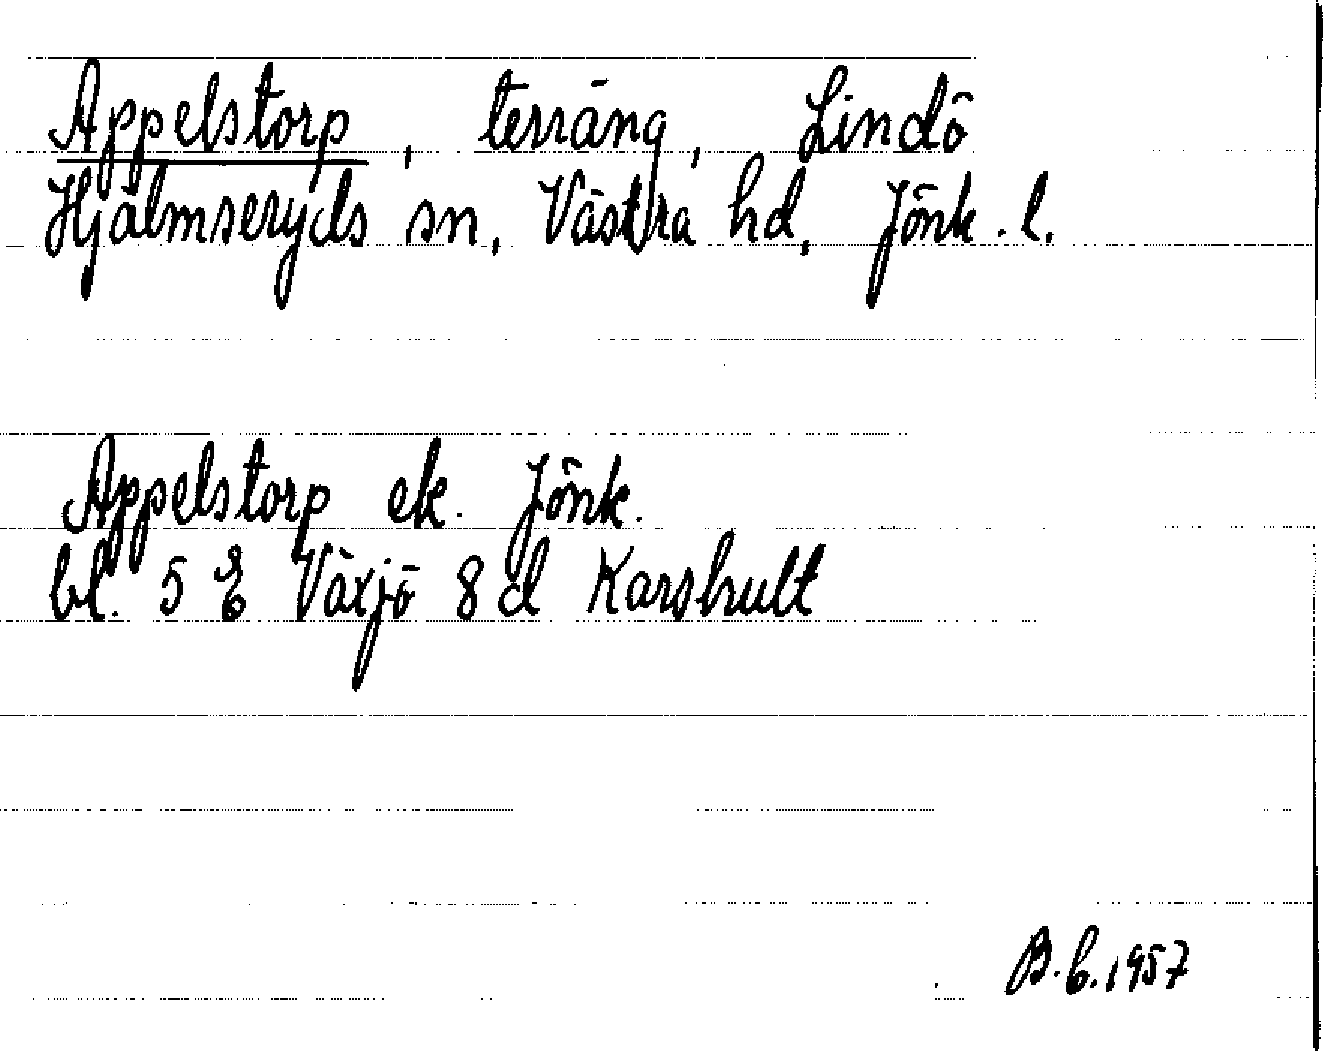 Appelstorp, terräng, Lindö
Hjälmseryds sn, Västra hd, Jönk. l.
Appelstorp ek. Jönk.
bl. 5 E Växjö 8 d Karshult
B.b. 1957